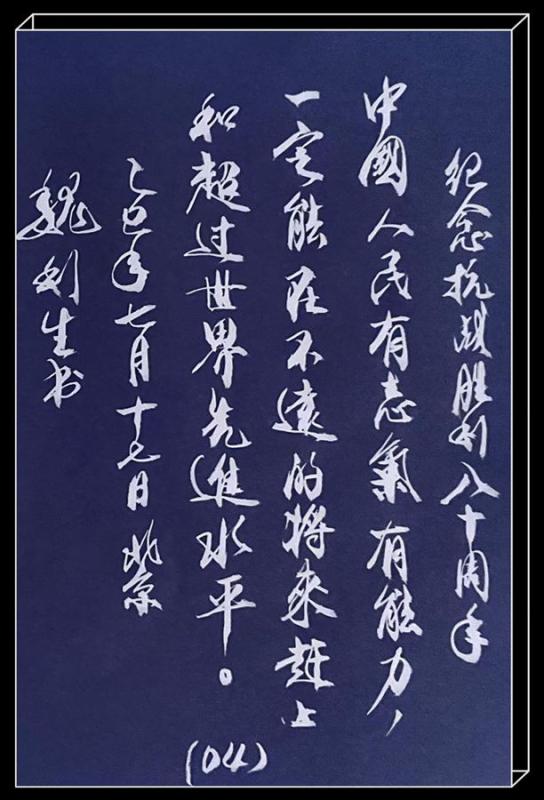 纪念抗战胜利八十周年
中國人民有志氣有能力，
一定能在不遠的将来趕上
和超过世界先進水平。
乙巳年七月十七日北京
魏利生书
(04)